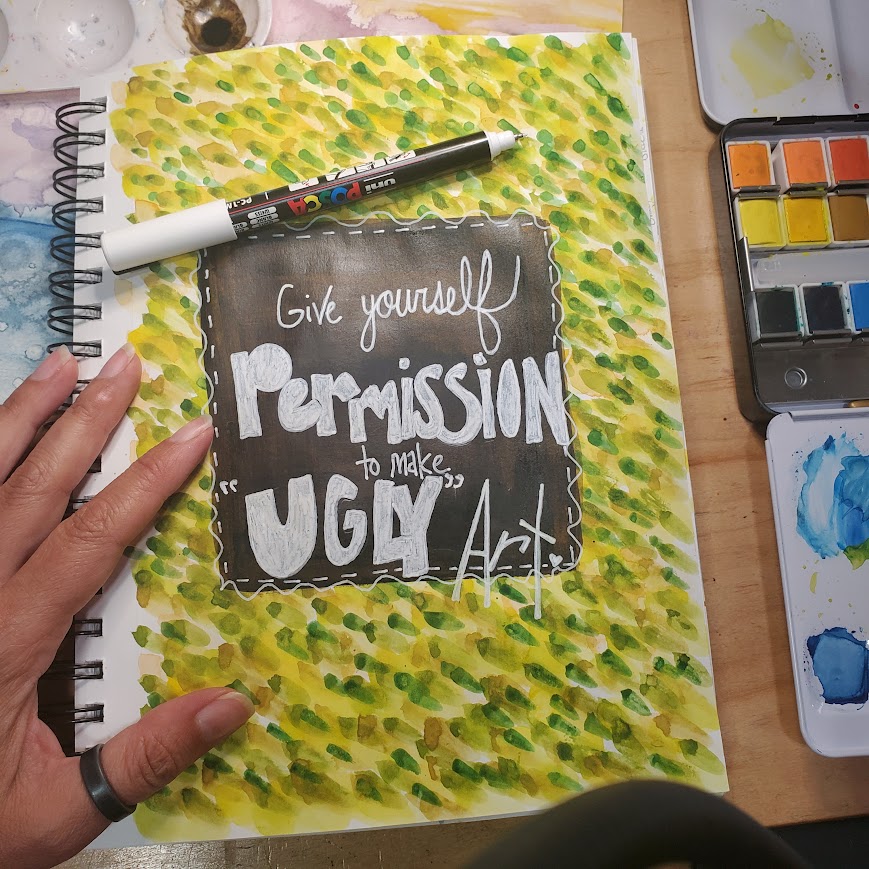 uni POSCA
PC-1M
Give yourself
PERMISSION
to make
"UGLY"
Art